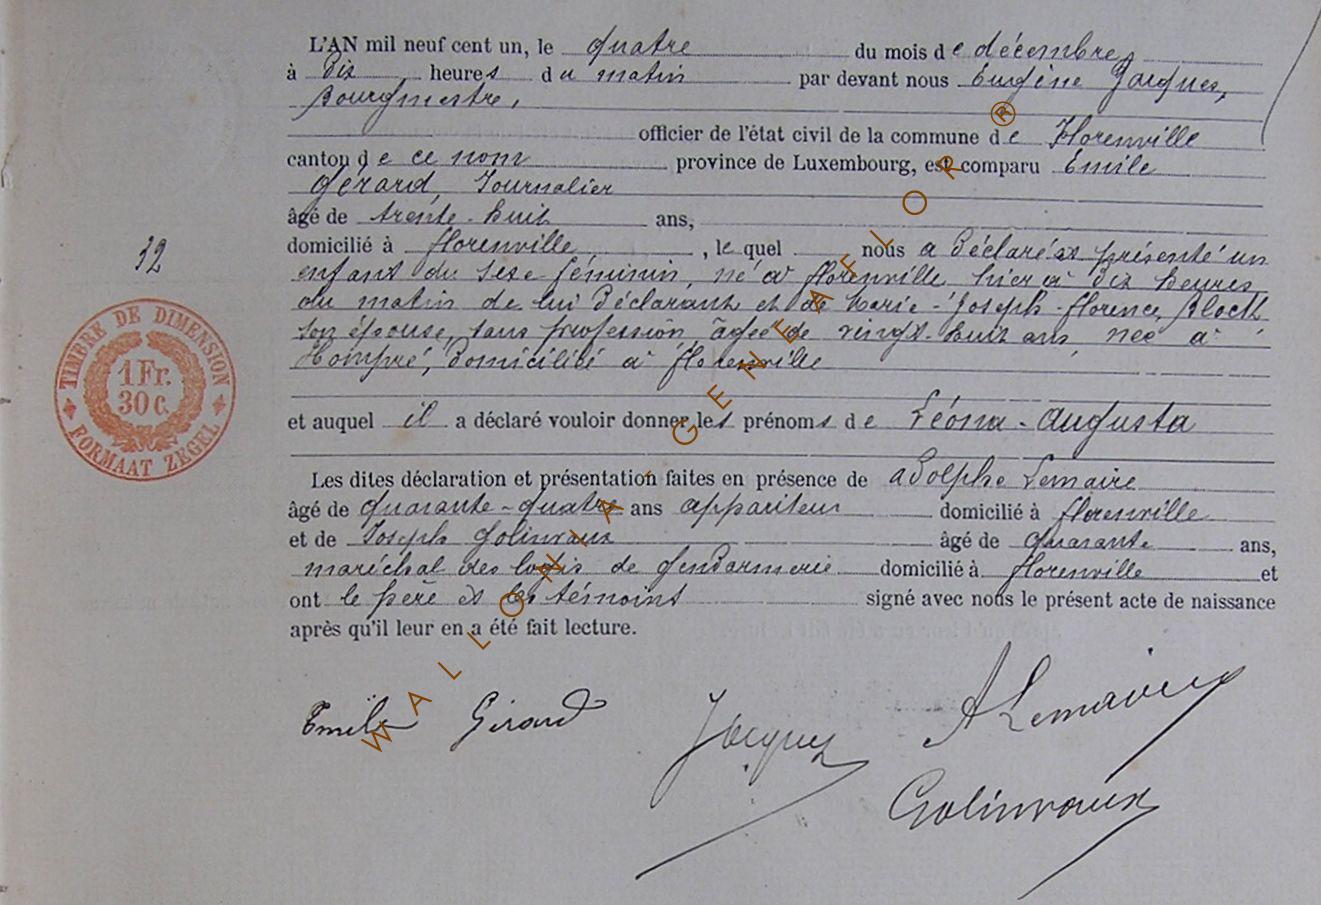 L'AN mil neuf cent un, le quatre du mois de décembre,
à dix heures du matin par devant nous Eugène Jacques,
Bourgmestre,
officier de l'état civil de la commune de Florenville
canton de ce nom province de Luxembourg, est comparu Emile
Gérard, Journalier
âgé de trente-huit ans,
domicilié à florenville, le quel nous a déclaré et présenté un
enfant du sexe féminin, né à florenville hier à dix heures
du matin de lui déclarant et de Marie-Joseph-florence Block
son épouse, sans profession, âgée de vingt-huit ans, née à
Hompré, domicilié à florenville
32
TIMBRE DE DIMENSION
1 Fr.
30 C.
FORMAAT ZEGEL
et auquel il a déclaré vouloir donner les prénoms de Léona-Augusta
Les dites déclaration et présentation faites en présence de adolphe Lemaire
âgé de quarante-quatre ans appariteur domicilié à florenville
et de Joseph Golinvaux âgé de quarante ans,
maréchal des logis de gendarmerie domicilié à florenville et
ont le père et les témoins signé avec nous le présent acte de naissance
après qu'il leur en a été fait lecture.
Emile Gérard Jacques A Lemaire
Golinvaux
WALLONIA-GENEAFLOR®